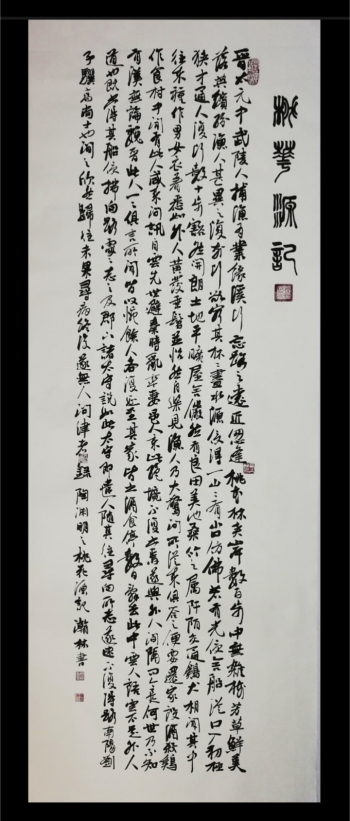 桃華源記
晉太元中武陵人捕漁為業緣溪行忘路之遠近忽逢桃花林夾岸數百步中無雜樹芳草鮮美
落英繽紛漁人甚異之復前行欲窮其林林盡水源便得一山山有小口仿佛若有光便舍船從口入初極
狹才通人復行數十步豁然開朗土地平曠屋舍儼然有良田美池桑竹之屬阡陌交通雞犬相聞其中
往來種作男女衣著悉如外人黃髮垂髫並怡然自樂見漁人乃大驚問所從來具答之便要還家設酒殺鷄
作食村中聞有此人咸來問訊自云先世避秦時亂率妻邑人來此絕境不復出焉遂與外人間隔問今是何世乃不知
有漢無論魏晉此人一一為具言所聞皆嘆惋餘人各復延至其家皆出酒食停數日辭去此中人語雲不足為外人
道也既出得其船便扶向路處處志之及郡下詣太守說如此太守即遣人隨其往尋向所志遂迷不復得路南陽劉
子驥高尚士也聞之欣然歸往未果尋病終後遂無人問津者 錄陶淵明之桃花源記 瀚林書